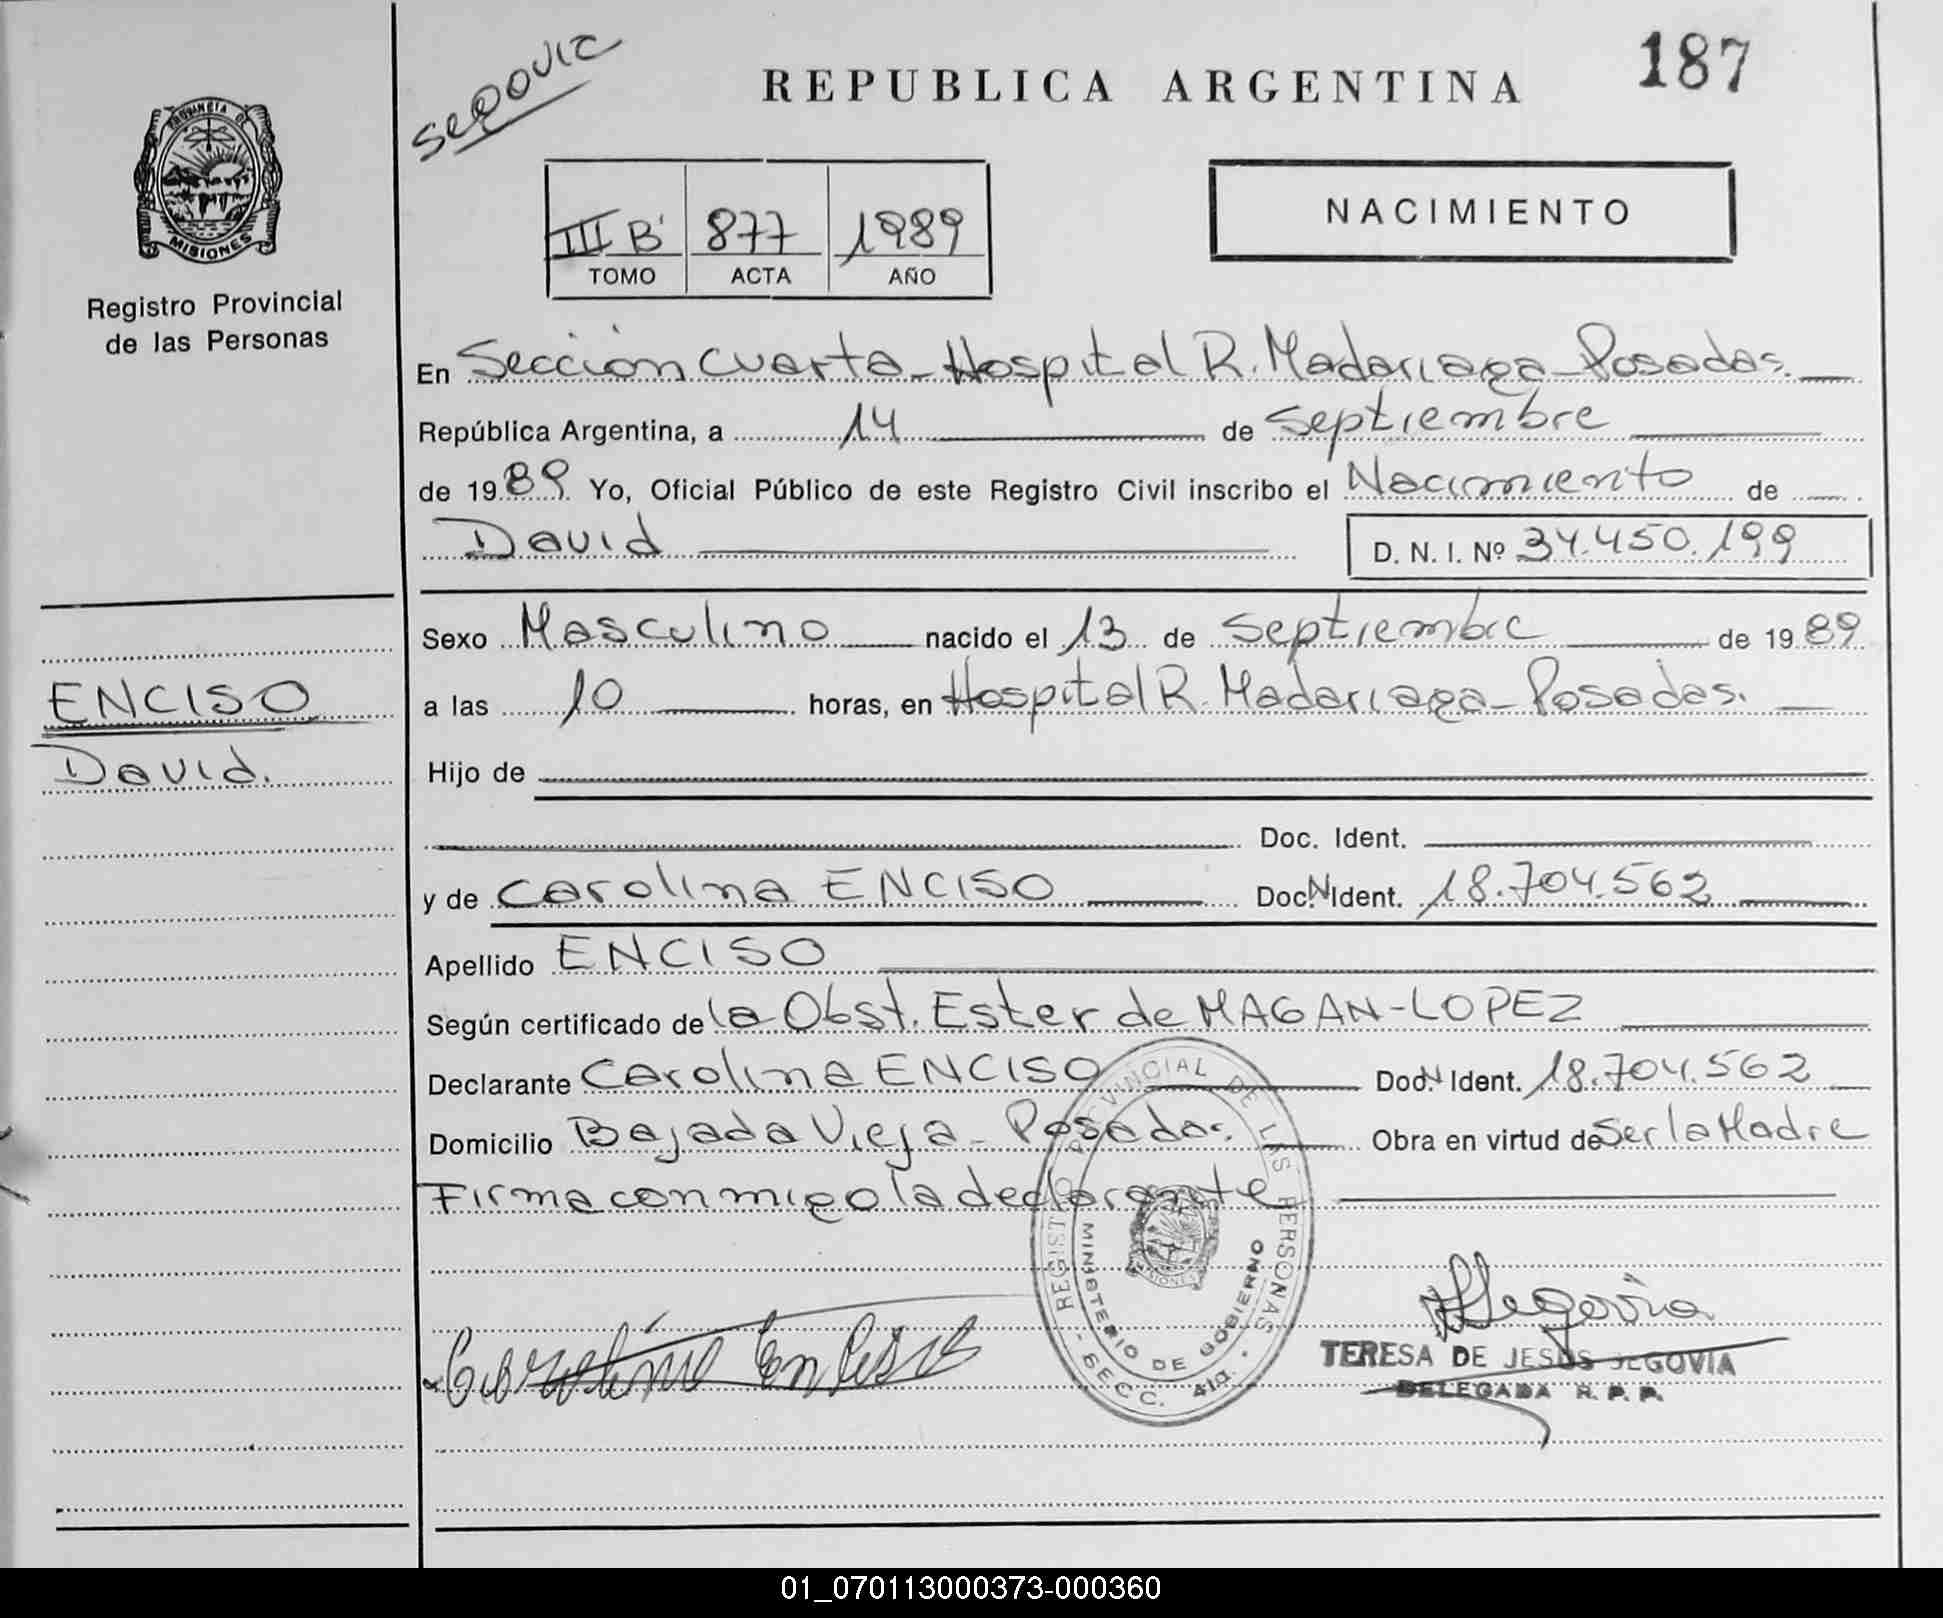 Segovic
REPUBLICA ARGENTINA
187
PROVINCIA DE
MISIONES
Registro Provincial
de las Personas
III B' 877 1989
TOMO ACTA AÑO
NACIMIENTO
En Sección Cuarta - Hospital R. Madariaga - Posadas.
República Argentina, a 14 de Septiembre
de 1989 Yo, Oficial Público de este Registro Civil inscribo el Nacimiento de
David
D. N. I. Nº 34.450.199
Sexo Masculino nacido el 13 de Septiembre de 1989
ENCISO
a las 10 horas, en Hospital R. Madariaga - Posadas.
David.
Hijo de
Doc. Ident.
y de Carolina ENCISO Doc. N Ident. 18.704.562
Apellido ENCISO
Según certificado de la Obst. Ester de MAGAN-LOPEZ
Declarante Carolina ENCISO Doc. N Ident. 18.704.562
Domicilio Bajada Vieja - Posadas. Obra en virtud de Ser la Madre
Firma conmigo la declarante
REGISTRO PROVINCIAL DE LAS PERSONAS
MINISTERIO DE GOBIERNO
- SECC. 4ta. -
MISIONES
Segovia
Carolina Enciso
TERESA DE JESUS SEGOVIA
DELEGADA R. P. P.
01_070113000373-000360